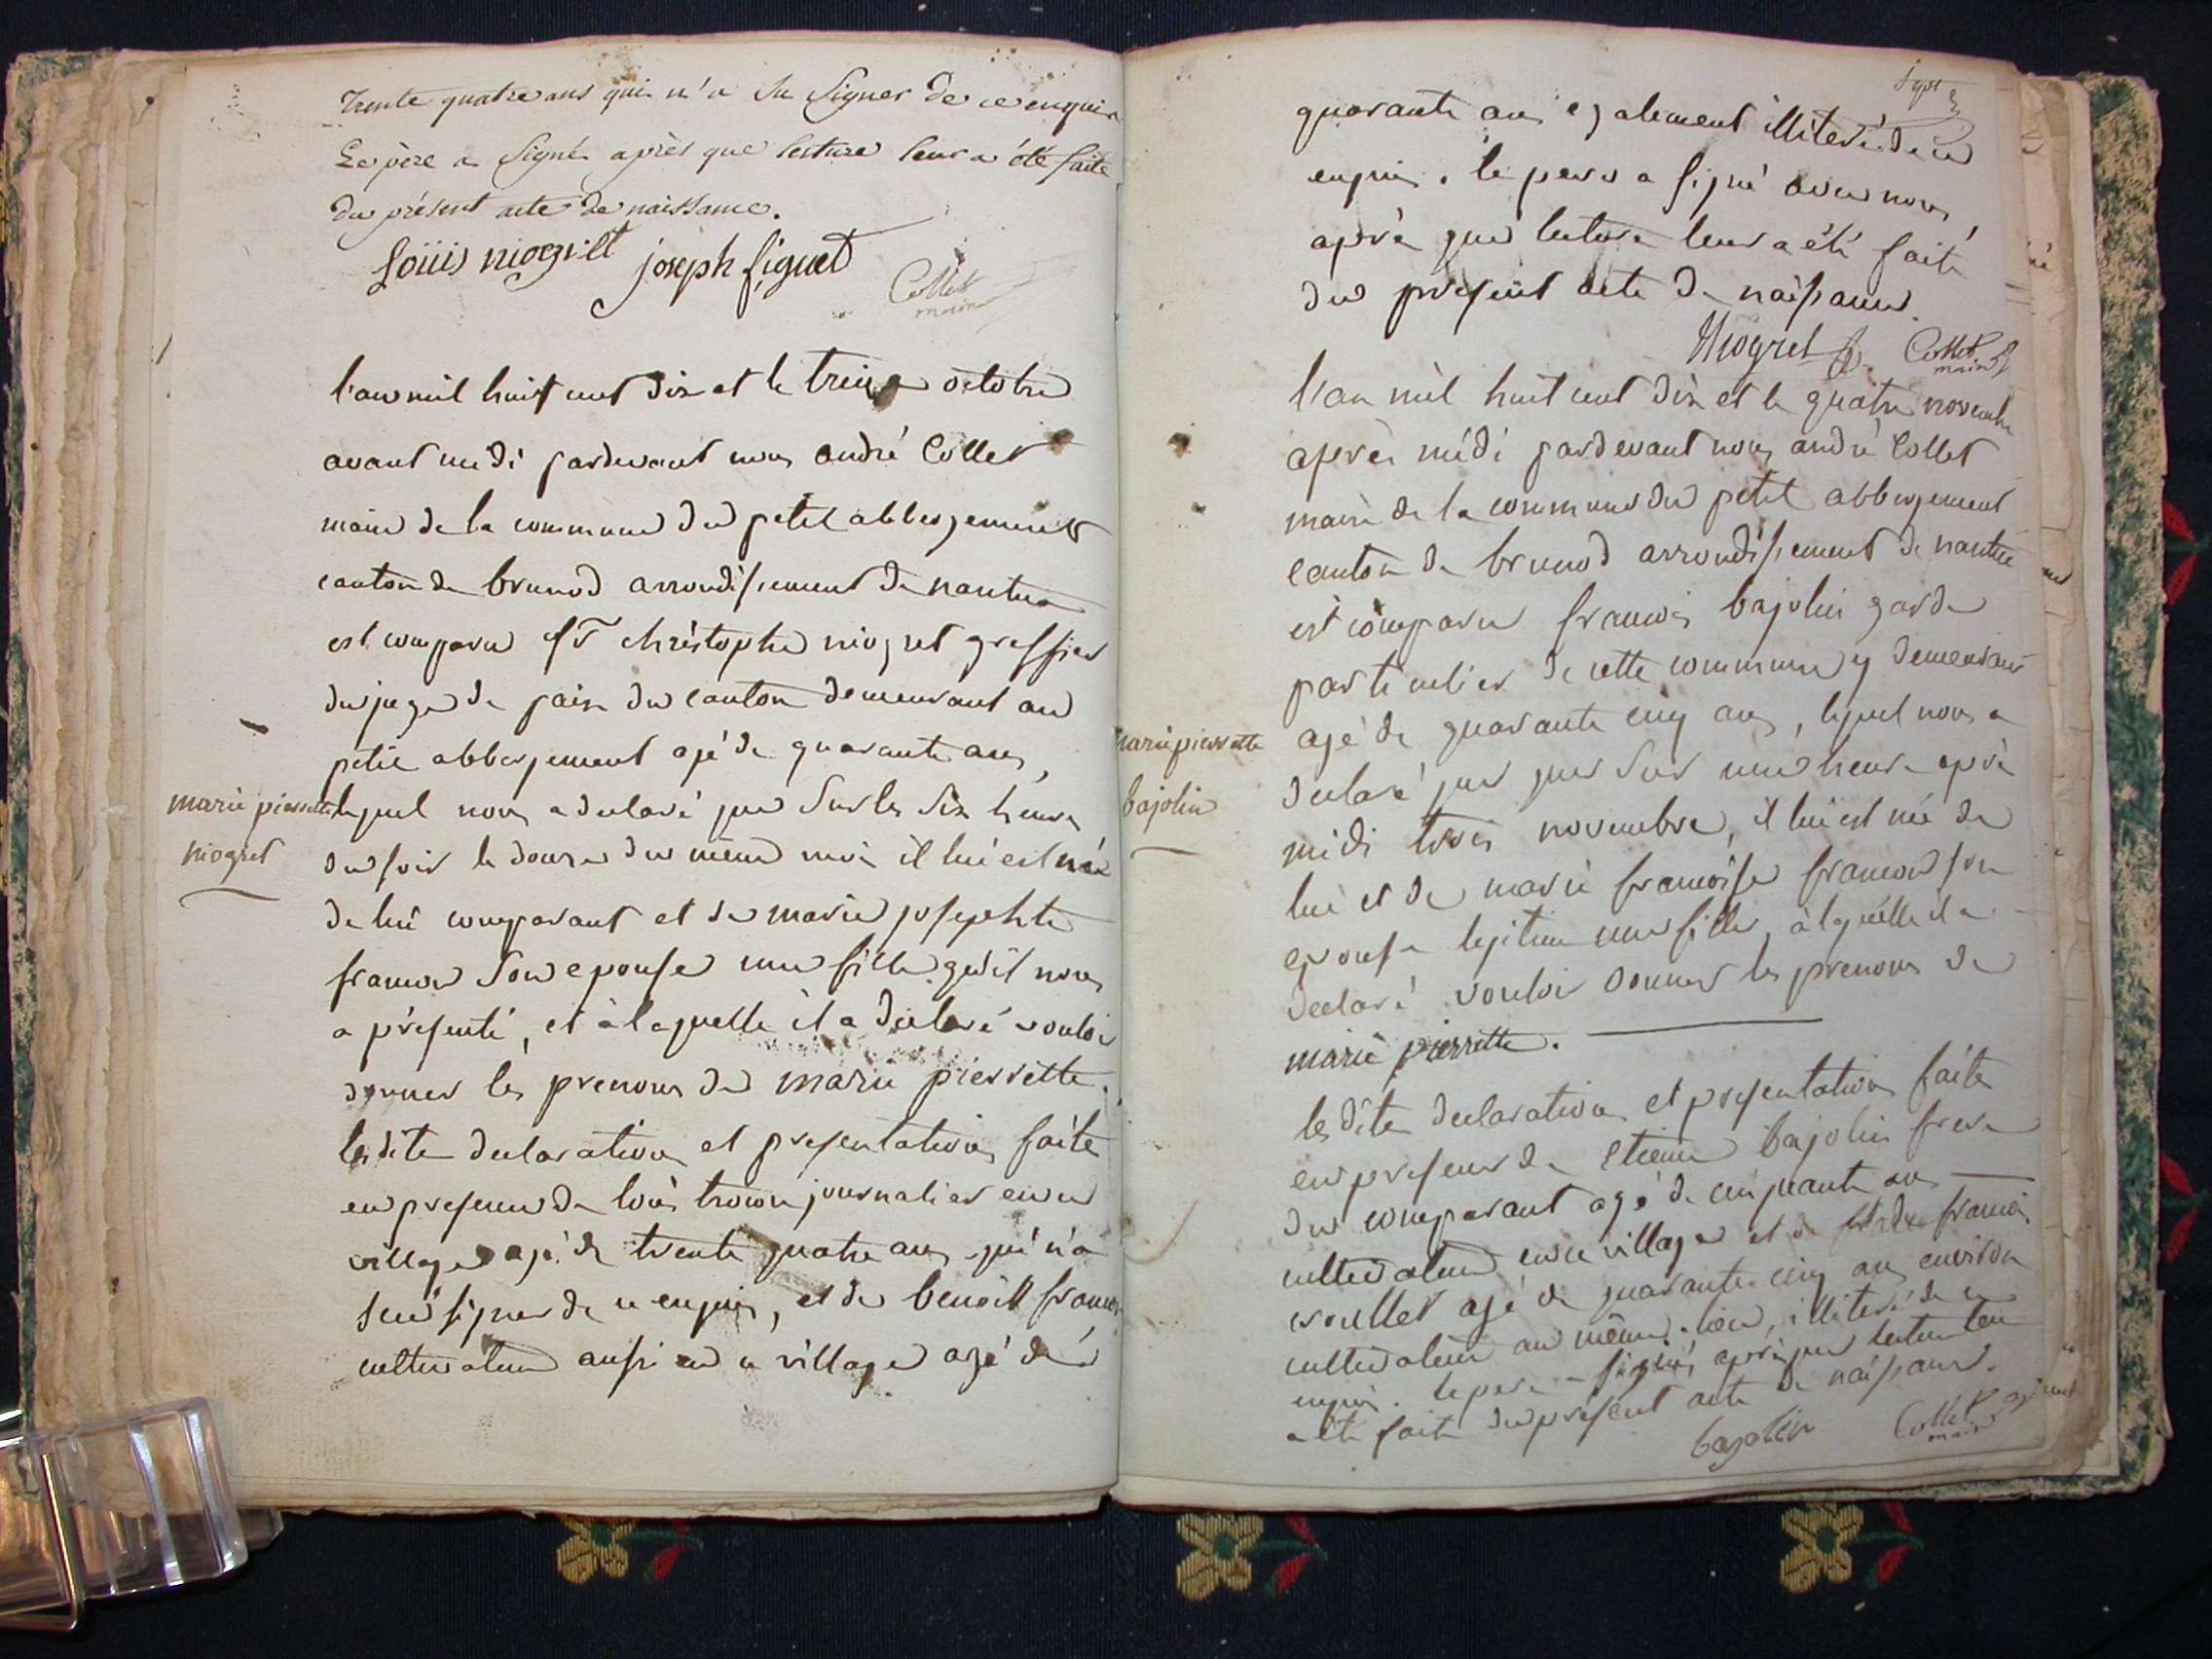 Trente quatre ans qui n'a su signer de ce enquis
Le père a signé après que lecture leur a été faite
du présent acte de naissance.
Loüis niogret joseph figuet
Collet
maire
l'an mil huit cent dix et le treize octobre
avant midi pardevant nous andré Collet
maire de la commune du petit abbergement
canton de brenod arrondissement de nantua
est comparu Sr christophe niogret greffier
du juge de paix du canton demeurant au
petit abbergement agé de quarante ans,
marie pierrette
niogret
lequel nous a declaré que sur les six heures
du soir le douze du même mois il lui est née
de lui comparant et de marie josephte
francon son epouse une fille qu'il nous
a présenté, et à laquelle il a déclaré vouloir
donner les prenoms de marie pierrette.
lesdite declaration et presentation faite
en presence de loüis journalier en ce
village agé de trente quatre ans qui n'a
seu signer de ce enquis, et de benoitt
cultivateur aussi en ce village agé de
quarante ans egalement illiteré de ce
enquis. le pere a signé avec nous,
après que lecture leur a été faite
du present acte de naissance.
Niogret Collet
maire
l'an mil huit cent dix et le quatre novembre
après midi pardevant nous andré Collet
maire de la commune du petit abbergement
canton de brenod arrondissement de nantua
est comparu francois bajolin garde
particulier de cette commune y demeurant
marie pierrette
bajolin
agé de quarante cinq ans, lequel nous a
declaré que que sur une heure après
midi trois novembre, il lui est née de
lui et de marie francoise francon son
epouse legitime une fille, à laquelle il a
declaré vouloir donner les prenoms de
marie pierrette.
lesdite declaration et presentation faite
en presence de etienne bajolin frere
du comparant agé de cinquante ans
cultivateur en ce village et de francois
agé de quarante cinq ans environ
cultivateur au même lieu, illiteré de ce
enquis. le pere a signé, après que lecture leur
a été faite du present acte de naissance.
bajolin Collet
maire